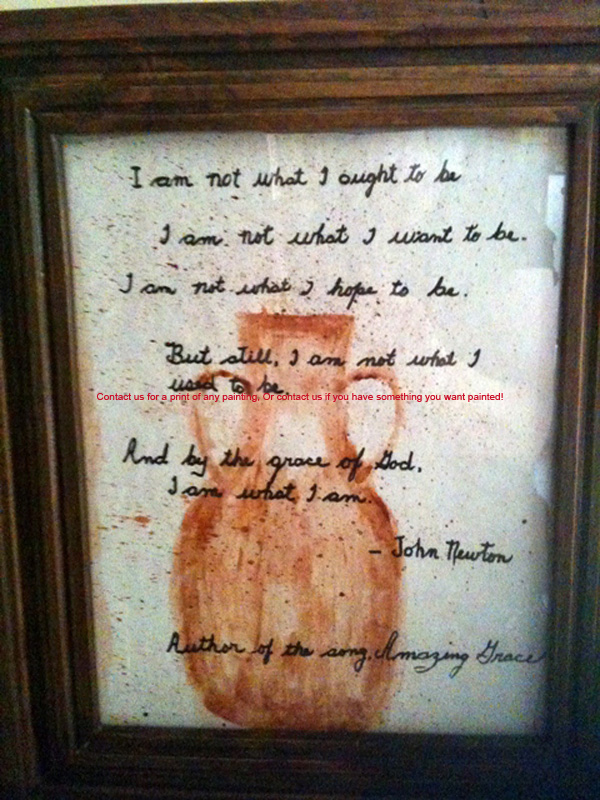 I am not what I ought to be
I am not what I want to be.
I am not what I hope to be.
But still, I am not what I
used to be.
Contact us for a print of any painting, Or contact us if you have something you want painted!
And by the grace of God,
I am what I am.
- John Newton
Author of the song, Amazing Grace